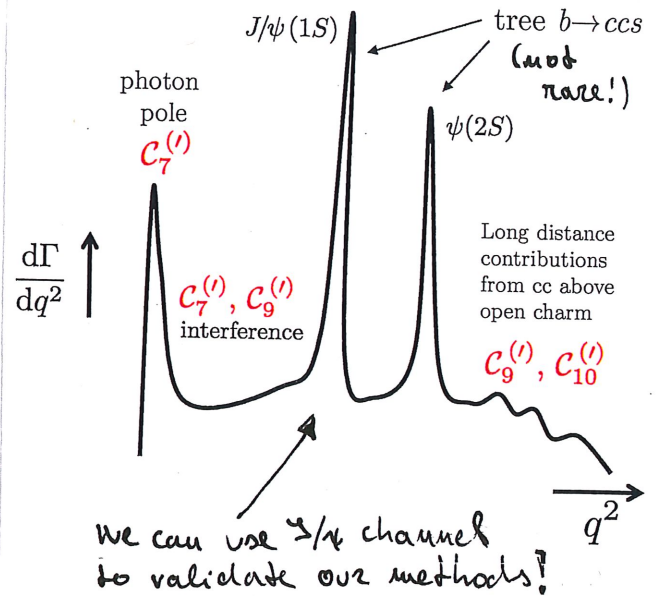 J/ψ(1S)
tree b→ccs
(not
rare!)
photon
pole
C₇⁽′⁾
ψ(2S)
dΓ
dq²
C₇⁽′⁾, C₉⁽′⁾
interference
Long distance
contributions
from cc above
open charm
C₉⁽′⁾, C₁₀⁽′⁾
q²
we can use J/ψ channel
to validate our methods!